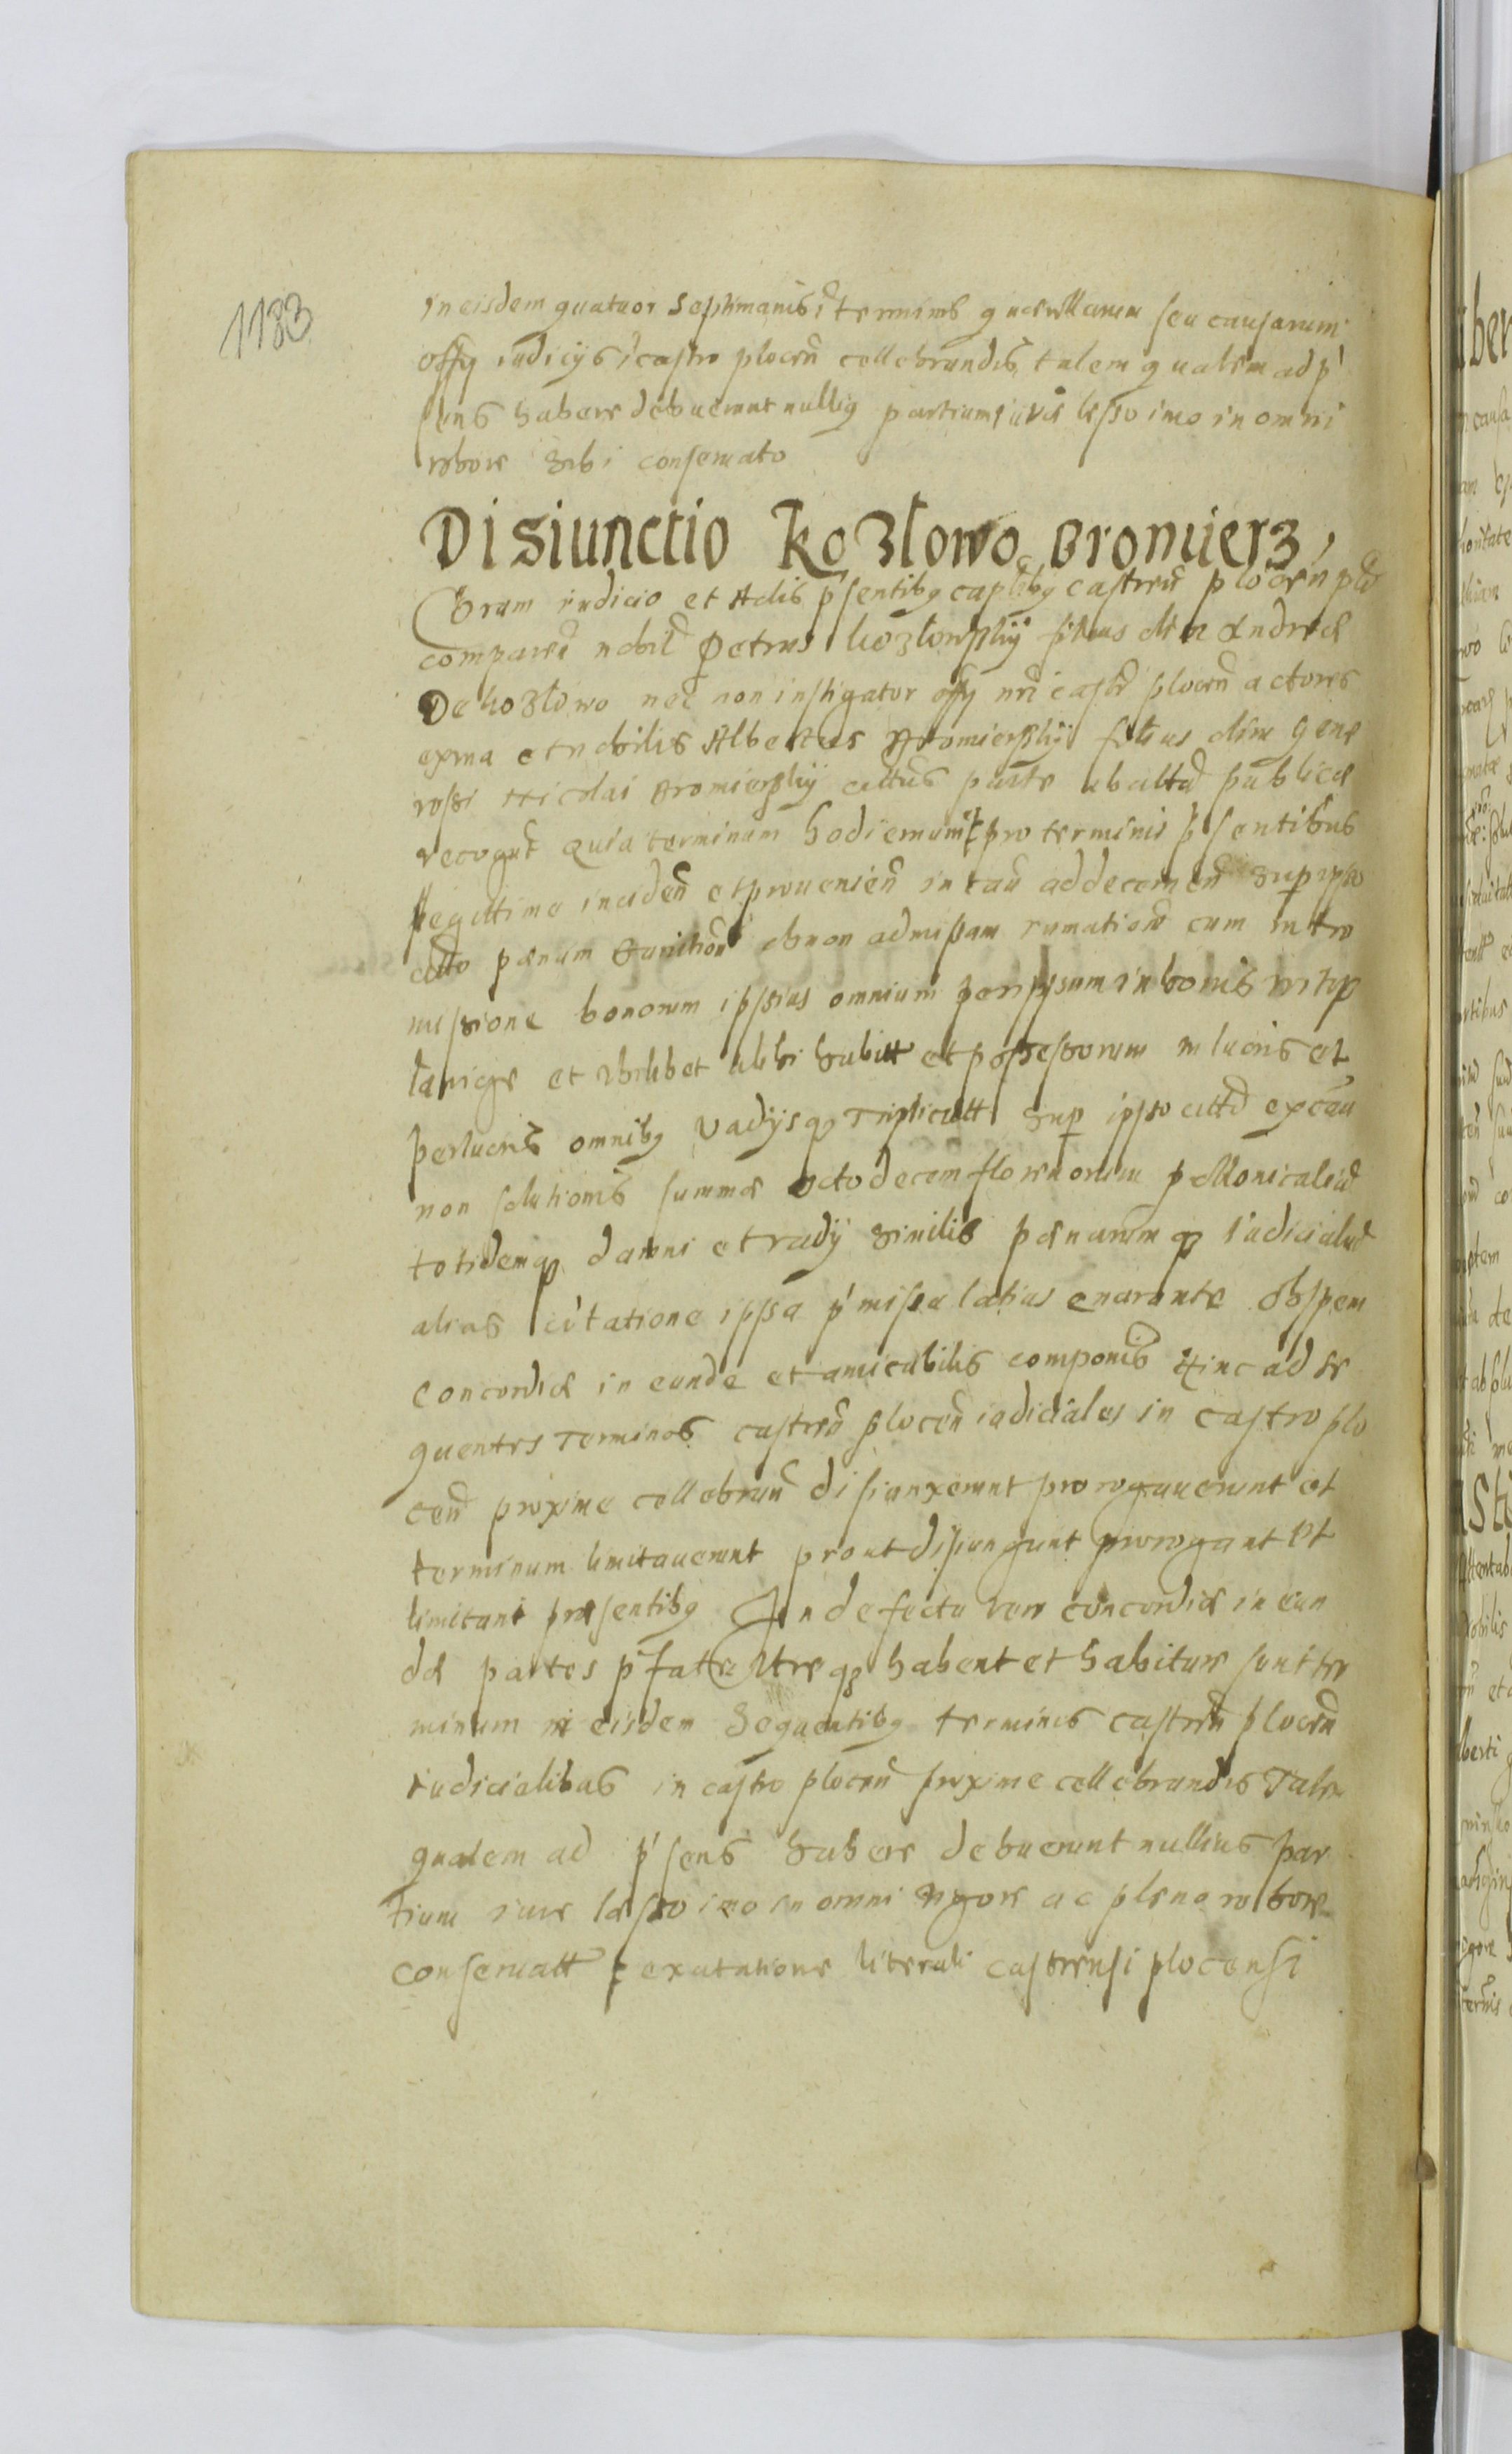 1183
in eisdem quatuor septimanis ī terminis querellarum seu causarum
offy iudicijs ī castro plocen̄ cellebrandis talem qualem ad p̄
sens habere debuerunt nulliq partium iure lesso imo in omni
robore sibi conseruato
Disiunctio Kozlowo Bromierz,
Coram iudicio et Actis p̄sentibq capl̄ibq castren̄ plocen̄
comparen̄ nobil̄ Petrus Kozlowskij filius olim Andreæ
De Kozlowo nec non instigator offy nr̄i castr̄ plocen̄ actores
ex vna et nobilis Albertus Bromierskij filius olim gene
rossi Nicolai Bromierskij cittus parte ab alta publice
recogn̄t quia terminum hodiernum pro terminis p̄sentibus
legittime inciden̄ et prouenien̄ in cau addecernen̄ sup ipso
citto pænam bannition̄ ob non admissam rumation̄ cum intro
missione bonorum ipsius omnium per ipsum in bonis
et vbilibet vbi habitt et possessorum in lucris et
perlucris omnibq vadijsq triplicatt sup ipso citto ex cau
non solutionis summæ octodecem florenorum pollonicaliu
totidemq damni et vadij similis pænarumq iudicialiu
alias citatione ipsa p̄missa latius enarante ob spem
concordiæ in eunde et amicabilis componis hinc ad se
quentes terminos castren̄ plocen̄ iudiciales in castro plo
cen̄ proxime cellebran̄ disiunxerunt prorogauerunt et
terminum limitauerunt prout disiungunt prorogant et
limitant præsentibq In defectu vero concordiæ in eun
dæ partes p̄fatte vtreq habent et habiture sunt ter
minum in eisdem sequentibq terminis castren̄ plocen̄
iudicialibus in castro plocen̄ proxime cellebrandis tale
qualem ad p̄sens habere debuerunt nullius par
tium iure læso imo in omni vigore ac pleno robore
conseruatt ex citatione literali castrensi plocensi